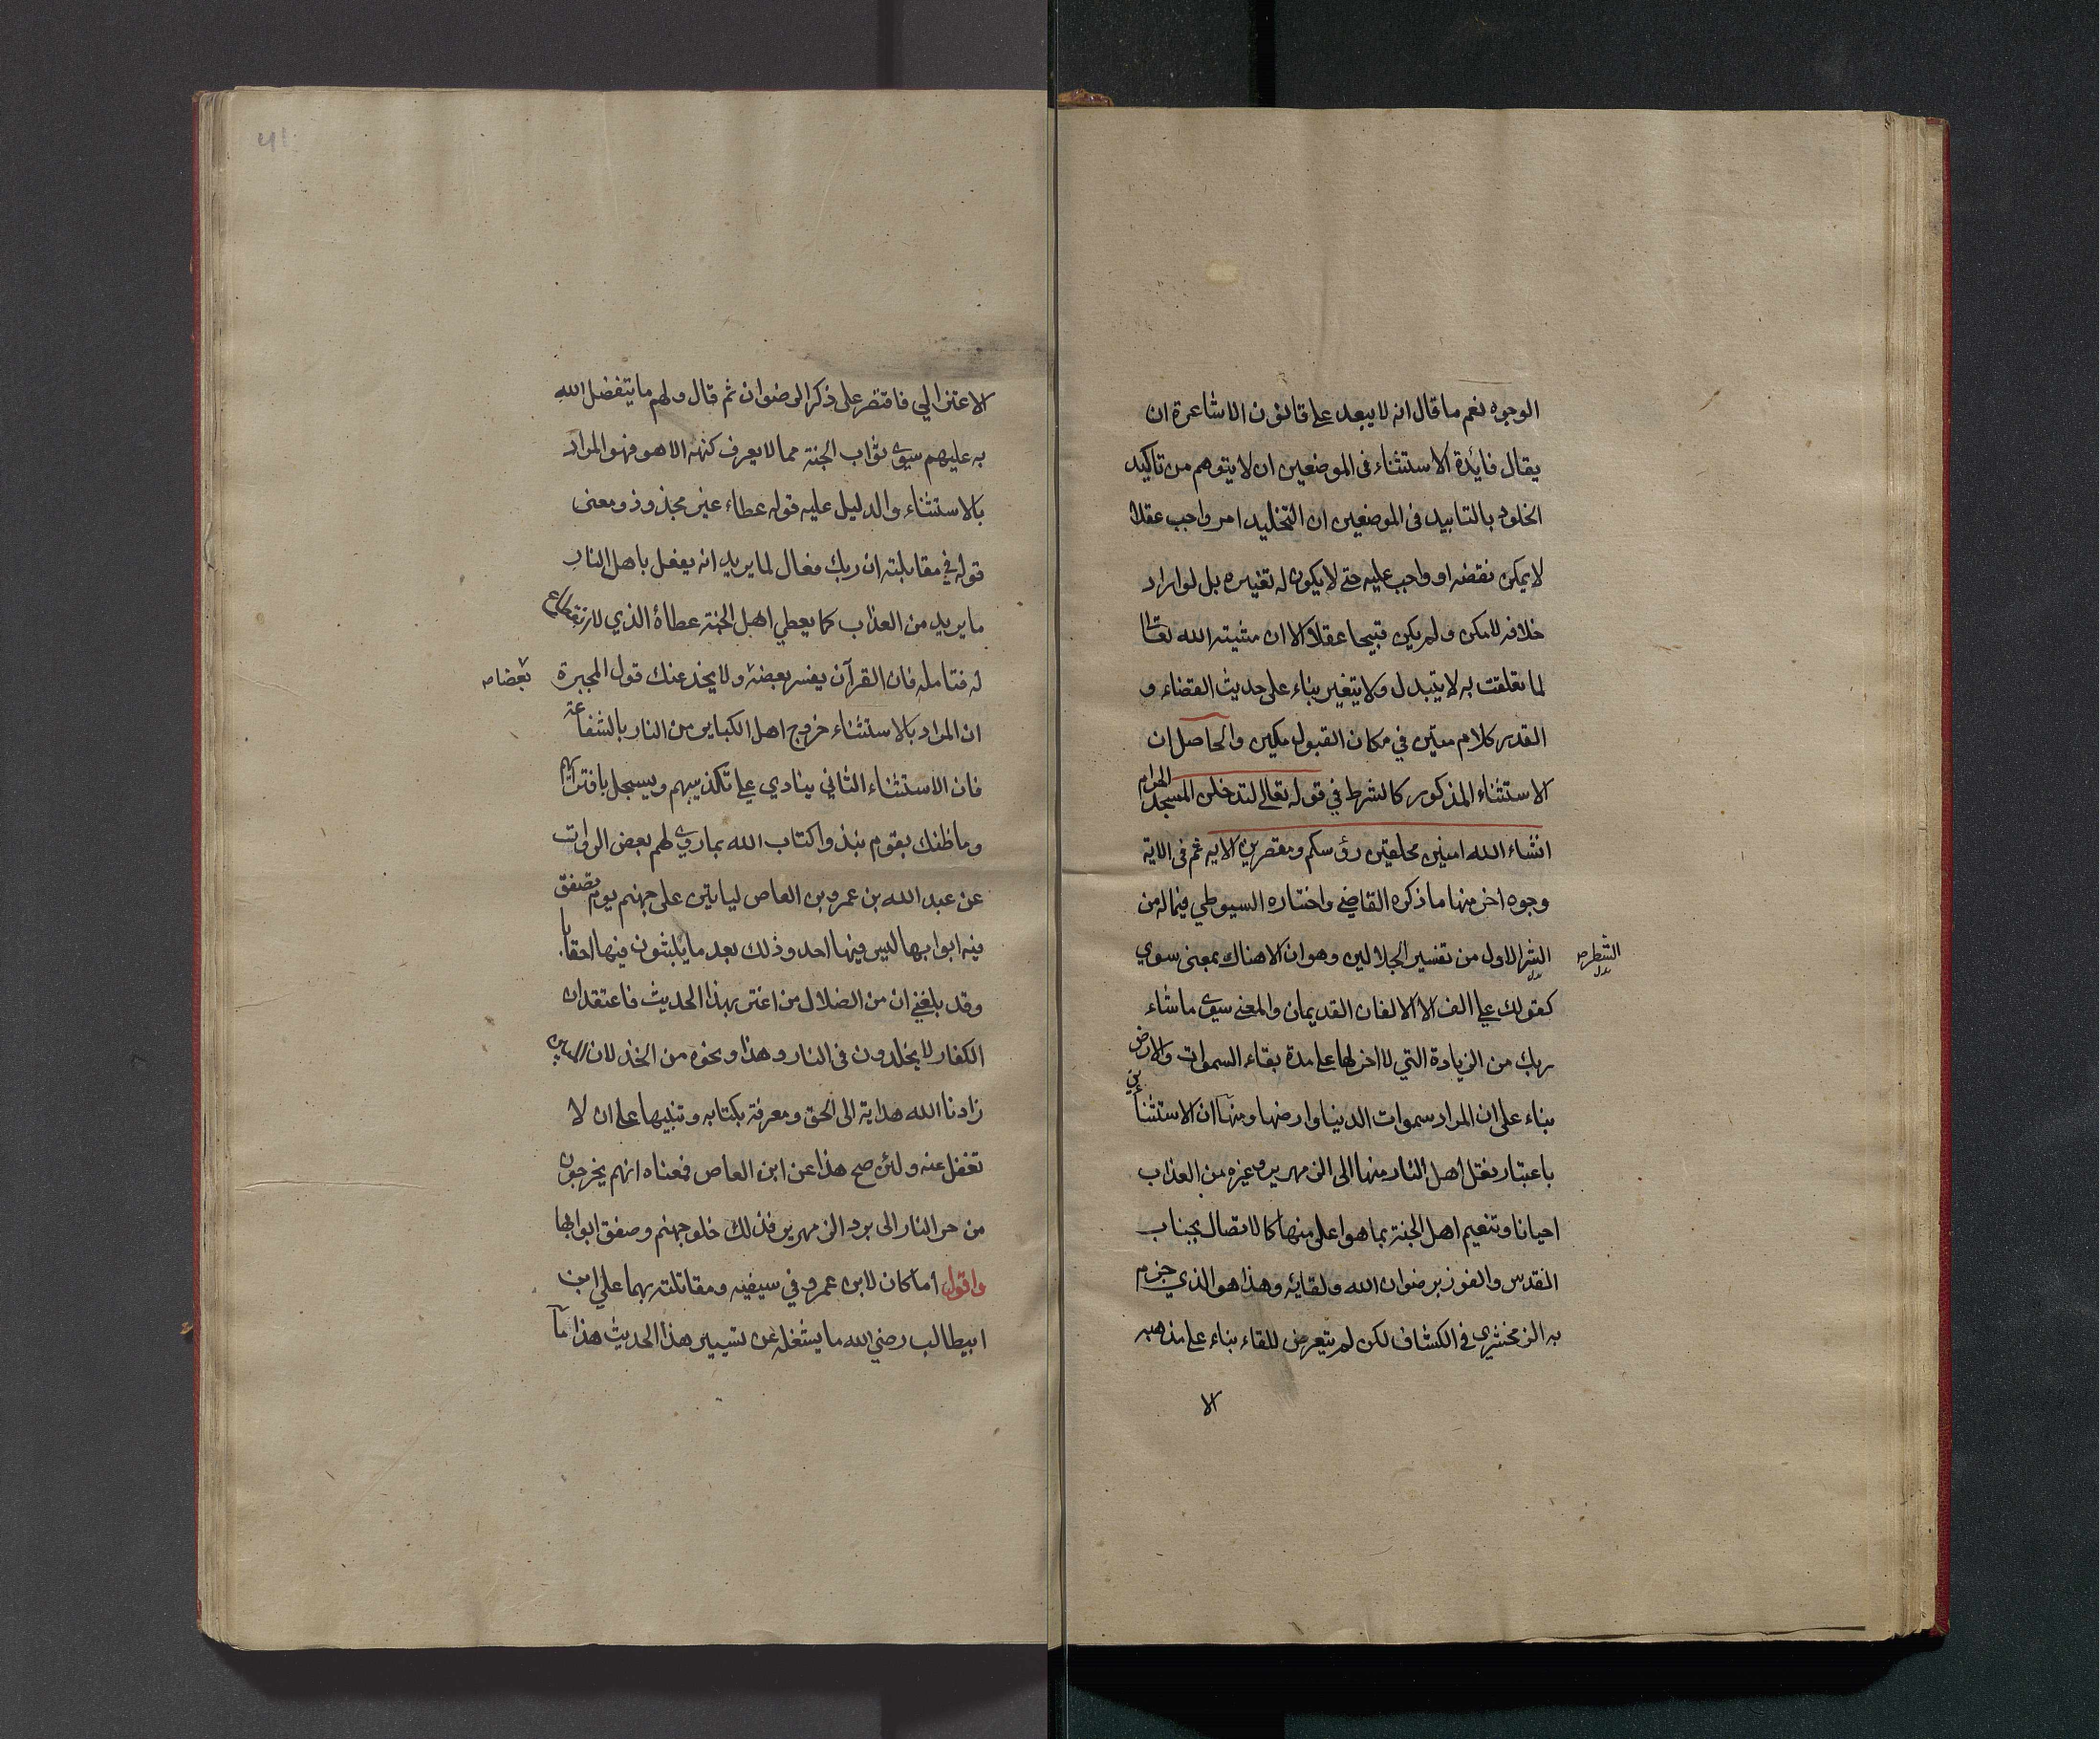 الوجوه نعم ما قال انه لا يبعد على قانون الاشاعرة ان
يقال فايدة الاستثناء فى الموضعين ان لا يتوهم من تاكيد
الخلود بالتابيد فى الموضعين ان التخليد امر واجب عقلا
لا يمكن نقضه او واجب عليه حتى لا يكون له تغييره بل لو اراد
خلافه لامكن ولم يكن قبيحا عقلا الا ان مشيته الله تعالى
لما تعلقت به لا يتبدل ولا يتغير بناء على حديث القضاء و
القدر كلام متين في مكان القبول مكين والحاصل ان
الاستثناء المذكور كالشرط في قوله تعالى لتدخلن المسجد الحرام
انشاء الله امنين محلقين رؤسكم ومقصرين الايه ثم فى الاية
وجوه اخر منها ما ذكره القاضي واختاره السيوطي فيما له من
الشر الاول من تفسير الجلالين وهو ان الا هناك بمعنى سوي
الشطر ص بدل
كقولك علي الف الا الالفان القديمان والمعنى سوى ما شاء
ربك من الزيادة التي لا اخر لها على مدة بقاء السموات والارض
بناء على ان المراد سموات الدنيا وارضها ومنها ان الاستثنائين
باعتبار نقل اهل النار منها الى الزمهرير وغيره من العذاب
احيانا وتنعيم اهل الجنة بما هو اعلى منها كالاتصال بجناب
القدس والفوز برضوان الله ولقايه وهذا هو الذي جزم
به الزمخشري فى الكشاف لكن لم يتعرض للقاء بناء على مذهبه
الا
الاعتزالي فاقتصر على ذكر الرضوان ثم قال ولهم ما يتفضل الله
به عليهم سوى ثواب الجنة مما لا يعرف كنهه الا هو فهو المراد
بالاستثناء والدليل عليه قوله عطاء غير مجذوذ ومعنى
قوله في مقابلته ان ربك فعال لما يريد انه يفعل باهل النار
ما يريد من العذاب كما يعطي اهل الجنة عطاءه الذي لا انقطاع
له فتامله فان القرآن يفسر بعضه ولا يخدعنك قول المجبرة
بعضا ص
ان المراد بالاستثناء خروج اهل الكباير من النار بالشفاعة
فان الاستثناء الثاني ينادي على تكذيبهم ويسجل بافترائهم
وما ظنك بقوم نبذوا كتاب الله بما روي لهم بعض الروات
عن عبد الله بن عمرو بن العاص لياتين على جهنم يوم تصفق
فيه ابوابها ليس فيها احد وذلك بعد ما يلبثون فيها احقابا
وقد بلغني ان من الضلال من اغتر بهذا الحديث فاعتقد ان
الكفار لا يخلدون فى النار وهذا ونحوه من الخذلان المبين
زادنا الله هداية الى الحق ومعرفة بكتابه وتنبيها على ان لا
تغفل عنه ولئن صح هذا عن ابن العاص فمعناه انهم يخرجون
من حر النار الى برد الزمهرير فذلك خلو جهنم وصفق ابوابها
واقول أما كان لابن عمرو في سيفيه ومقاتلته بهما علي ابن
ابيطالب رضي الله ما يشغله عن تسيير هذا الحديث هذا ما